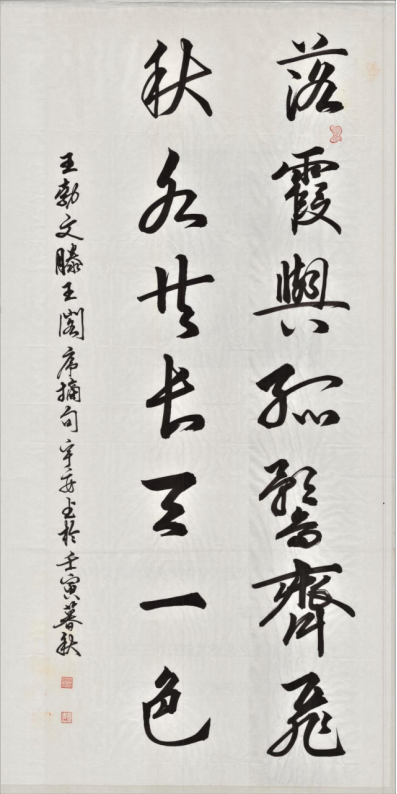 落霞與孤鶩齊飛
秋水共長天一色
王勃文滕王閣序摘句 安書於壬寅暮秋